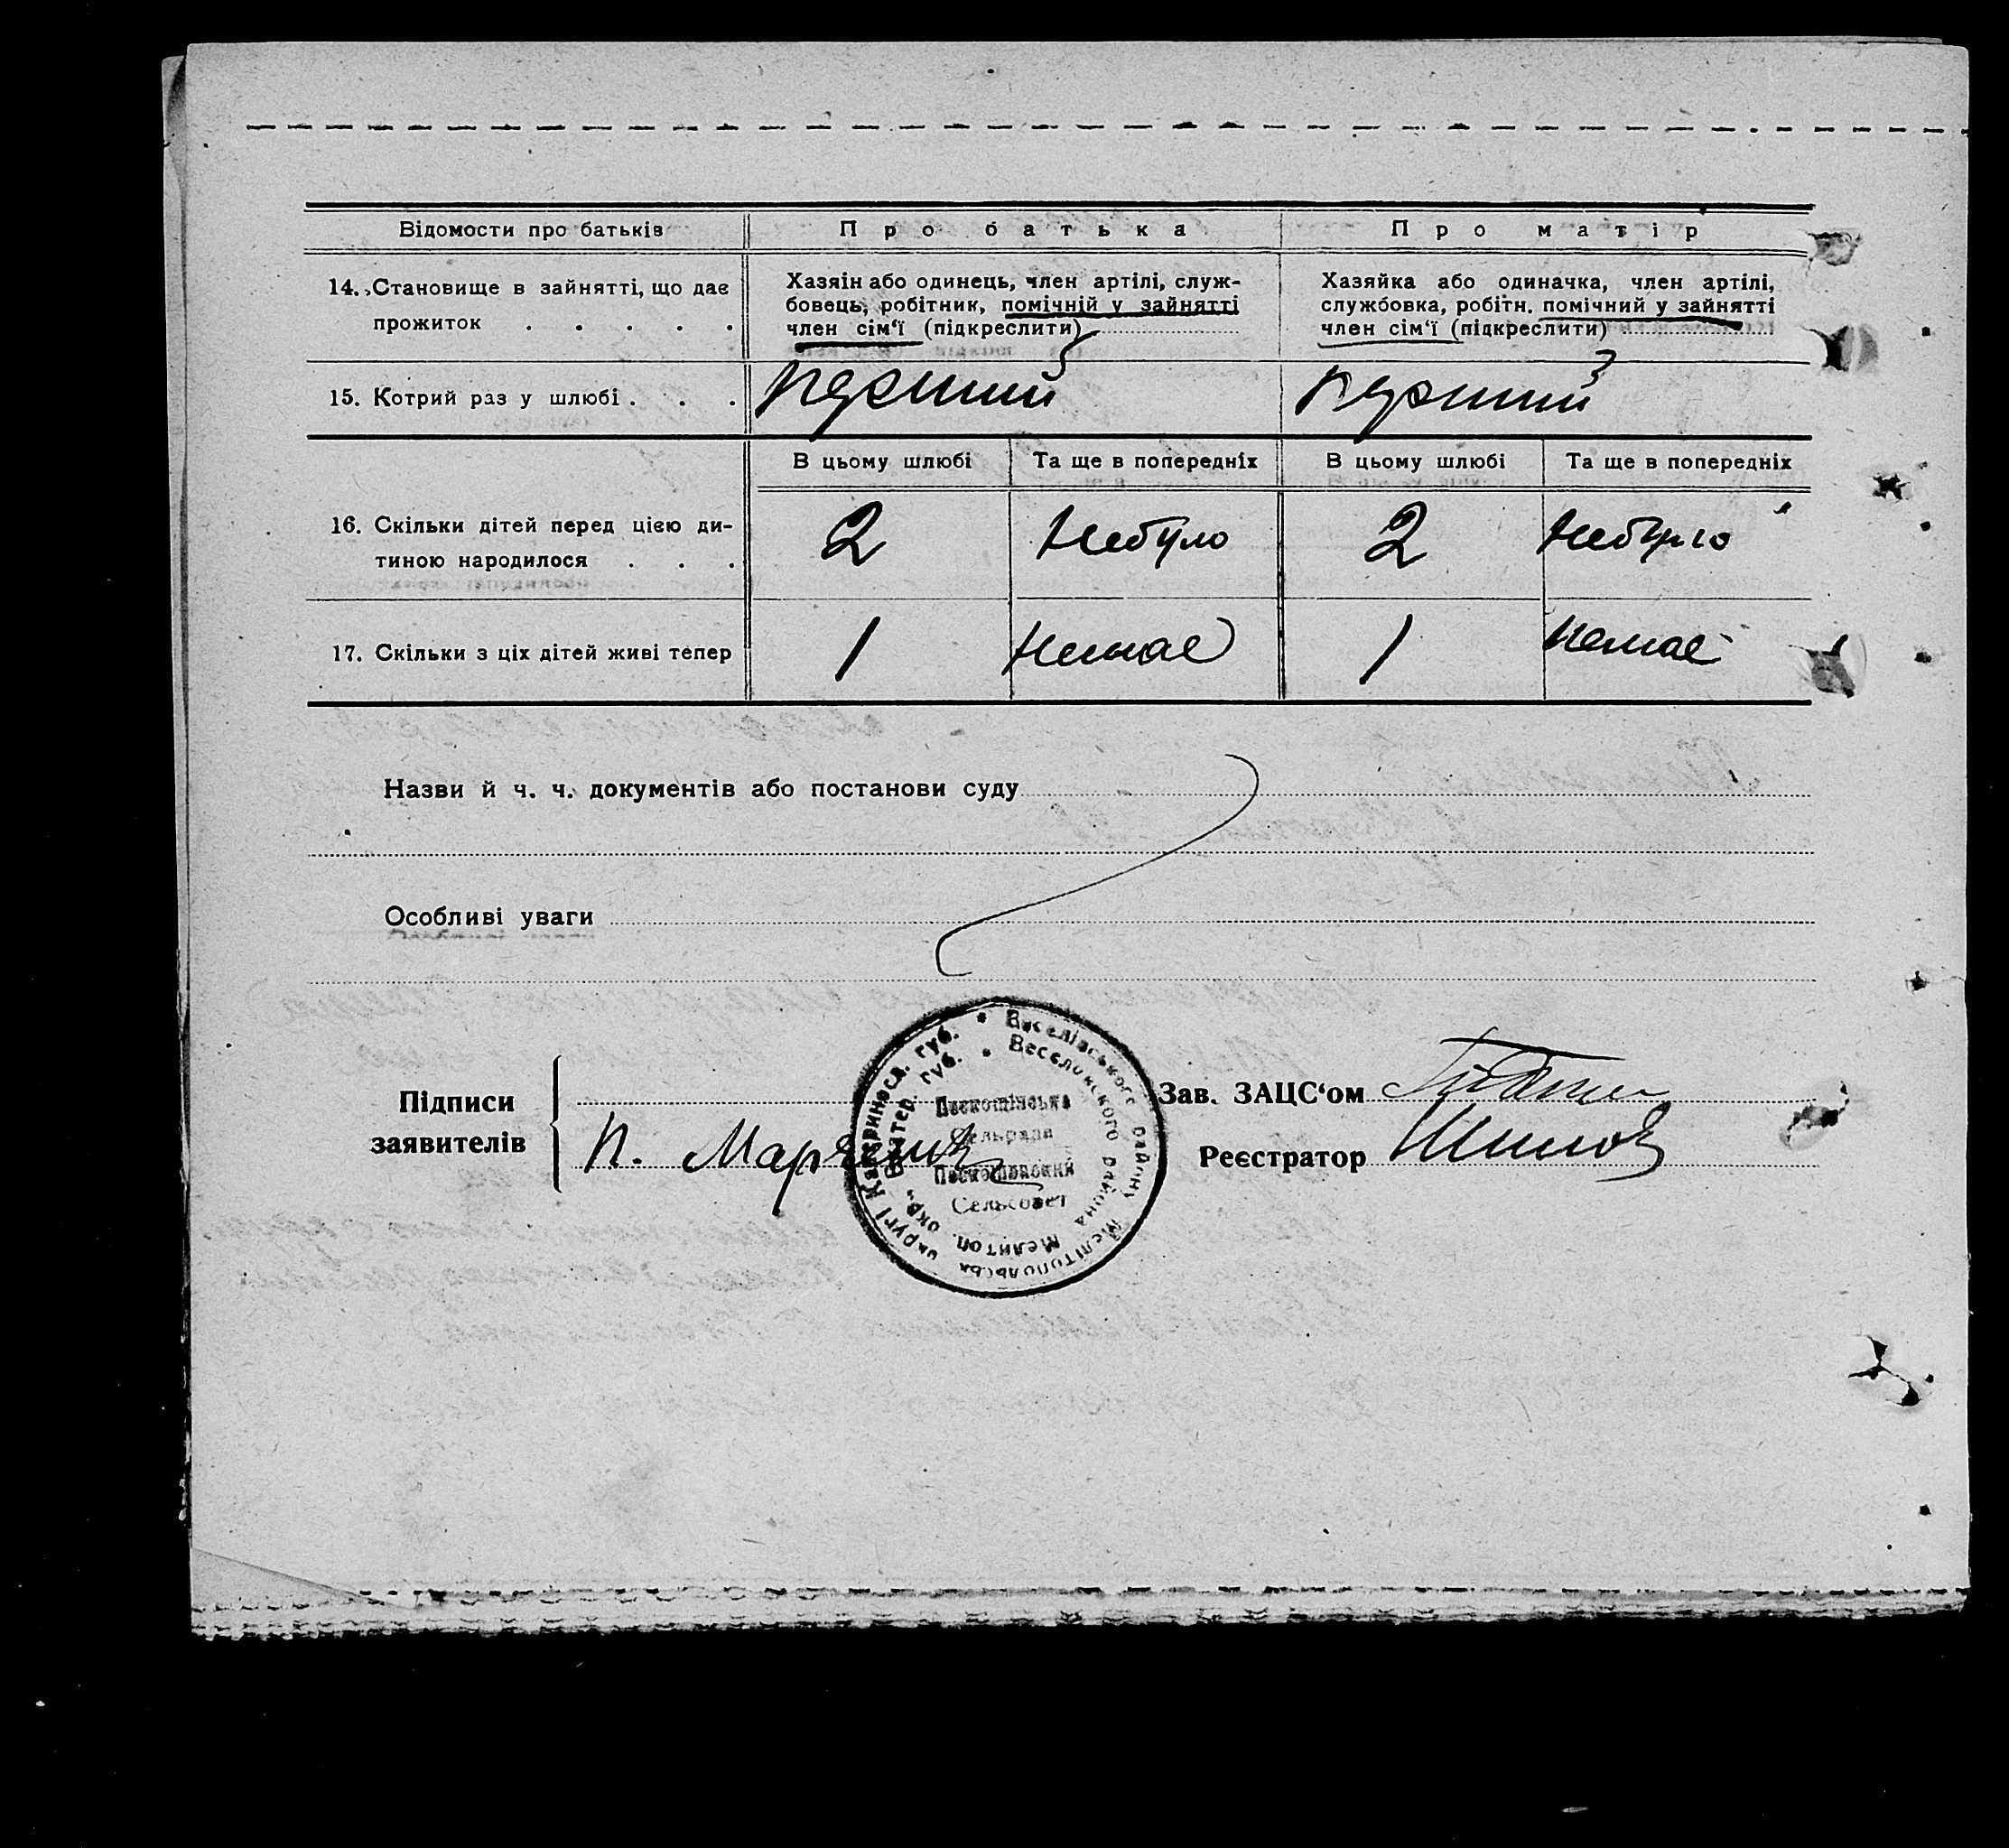 Відомости про батьків Про батька Про матір
14. Становище в зайнятті, що дає
прожиток . . . . .
Хазяін або одинець, член артілі, служ-
бовець, робітник, помічній у зайнятті
член сім‘ї (підкреслити)
Хазяйка або одиначка, член артілі,
службовка, робітн. помічний у зайнятті
член сім‘ї (підкреслити)
15. Котрий раз у шлюбі . . . перший перший
В цьому шлюбі Та ще в попередніх В цьому шлюбі Та ще в попередніх
16. Скільки дітей перед цією ди-
тиною народилося . . .
2 Небуло 2 Небуло
17. Скільки з ціх дітей живі тепер 1 Немає 1 Немає
Назви й ч. ч. документів або постанови суду
Особливі уваги
Підписи
заявителів
П.
Зав. ЗАЦС‘ом
Реєстратор
округі Катериносл. губ. • Веселівського району Мелітопольськ
окр., Екатер. губ. • Веселовского района Мелитоп.
Сельрада
Сельсовет